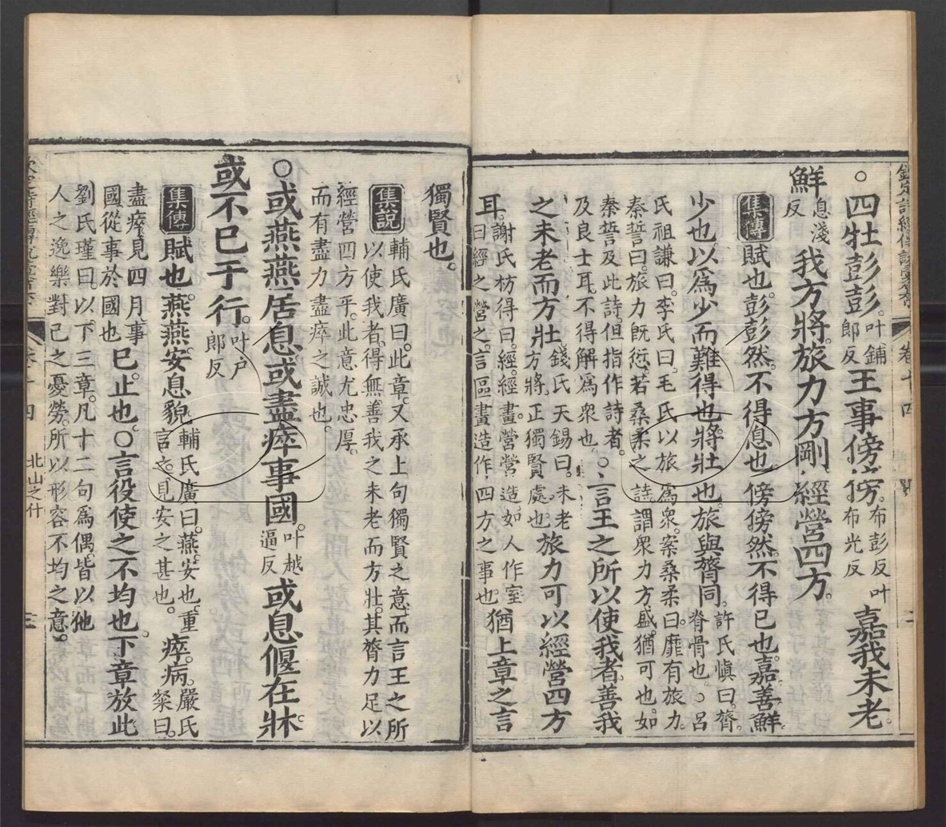 ○四牡彭彭。叶鋪郎反王事傍傍。布彭反叶布光反嘉我未老。
鮮息淺反我方將。旅力方剛。經營四方。
集傳賦也。彭彭然。不得息也。傍傍然。不得已也。嘉善。鮮
少也以爲少而難得也。將壯也。旅與膂同。許氏愼曰。膂脊骨也。○呂
氏祖謙曰。李氏曰。毛氏以旅爲衆。案桑柔曰。靡有旅力。
秦誓曰。旅力旣愆。若桑柔之詩。謂衆力方盛猶可也。如
秦誓及此詩。但指作詩者。及良士耳。不得解爲衆也。○言王之所以使我者。善我
之未老而方壯。錢氏天錫曰。未老方將。正獨賢處也。旅力可以經營四方
耳。謝氏枋得曰。經經畫。營營造。如人作室曰經之營之。言區畫造作四方之事也。猶上章之言
獨賢也。
集說輔氏廣曰。此章又承上句獨賢之意。而言王之所
以使我者。得無善我之未老而方壯。其膂力足以
經營四方乎。此意尤忠厚。
而有盡力盡瘁之誠也。
○或燕燕居息。或盡瘁事國。叶越逼反或息偃在牀
或不已于行。叶戶郎反
集傳賦也。燕燕。安息貌。輔氏廣曰。燕安也。重言之。見安之甚也。瘁。病。嚴氏粲曰。
盡瘁見四月事國從事於國也已。止也。○言役使之不均也。下章放此
劉氏瑾曰。以下三章。凡十二句爲偶。皆以他
人之逸樂。對已之憂勞。所以形容不均之意。
卷十四
北山之什
三